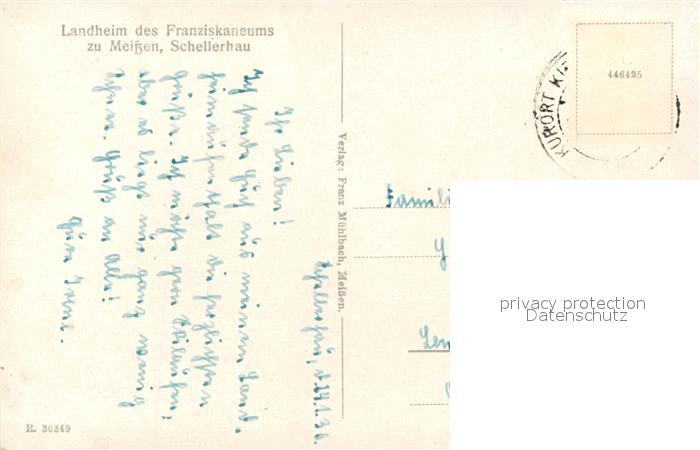 Landheim des Franziskaneums
zu Meißen, Schellerhau
Schellerhau, d. 14.1.36.
Ihr Lieben!
Ich sende Euch aus meinem Land-
heimaufenthalt die herzlichsten
Grüße. Ich möchte gern Skilaufen,
aber es liegt nur ganz wenig
Schnee. Grüß an alle!
Eure Irene.
Verlag: Franz Mühlbach, Meißen.
R. 30349
KURORT KI
446425
Famili
privacy protection
Datenschutz